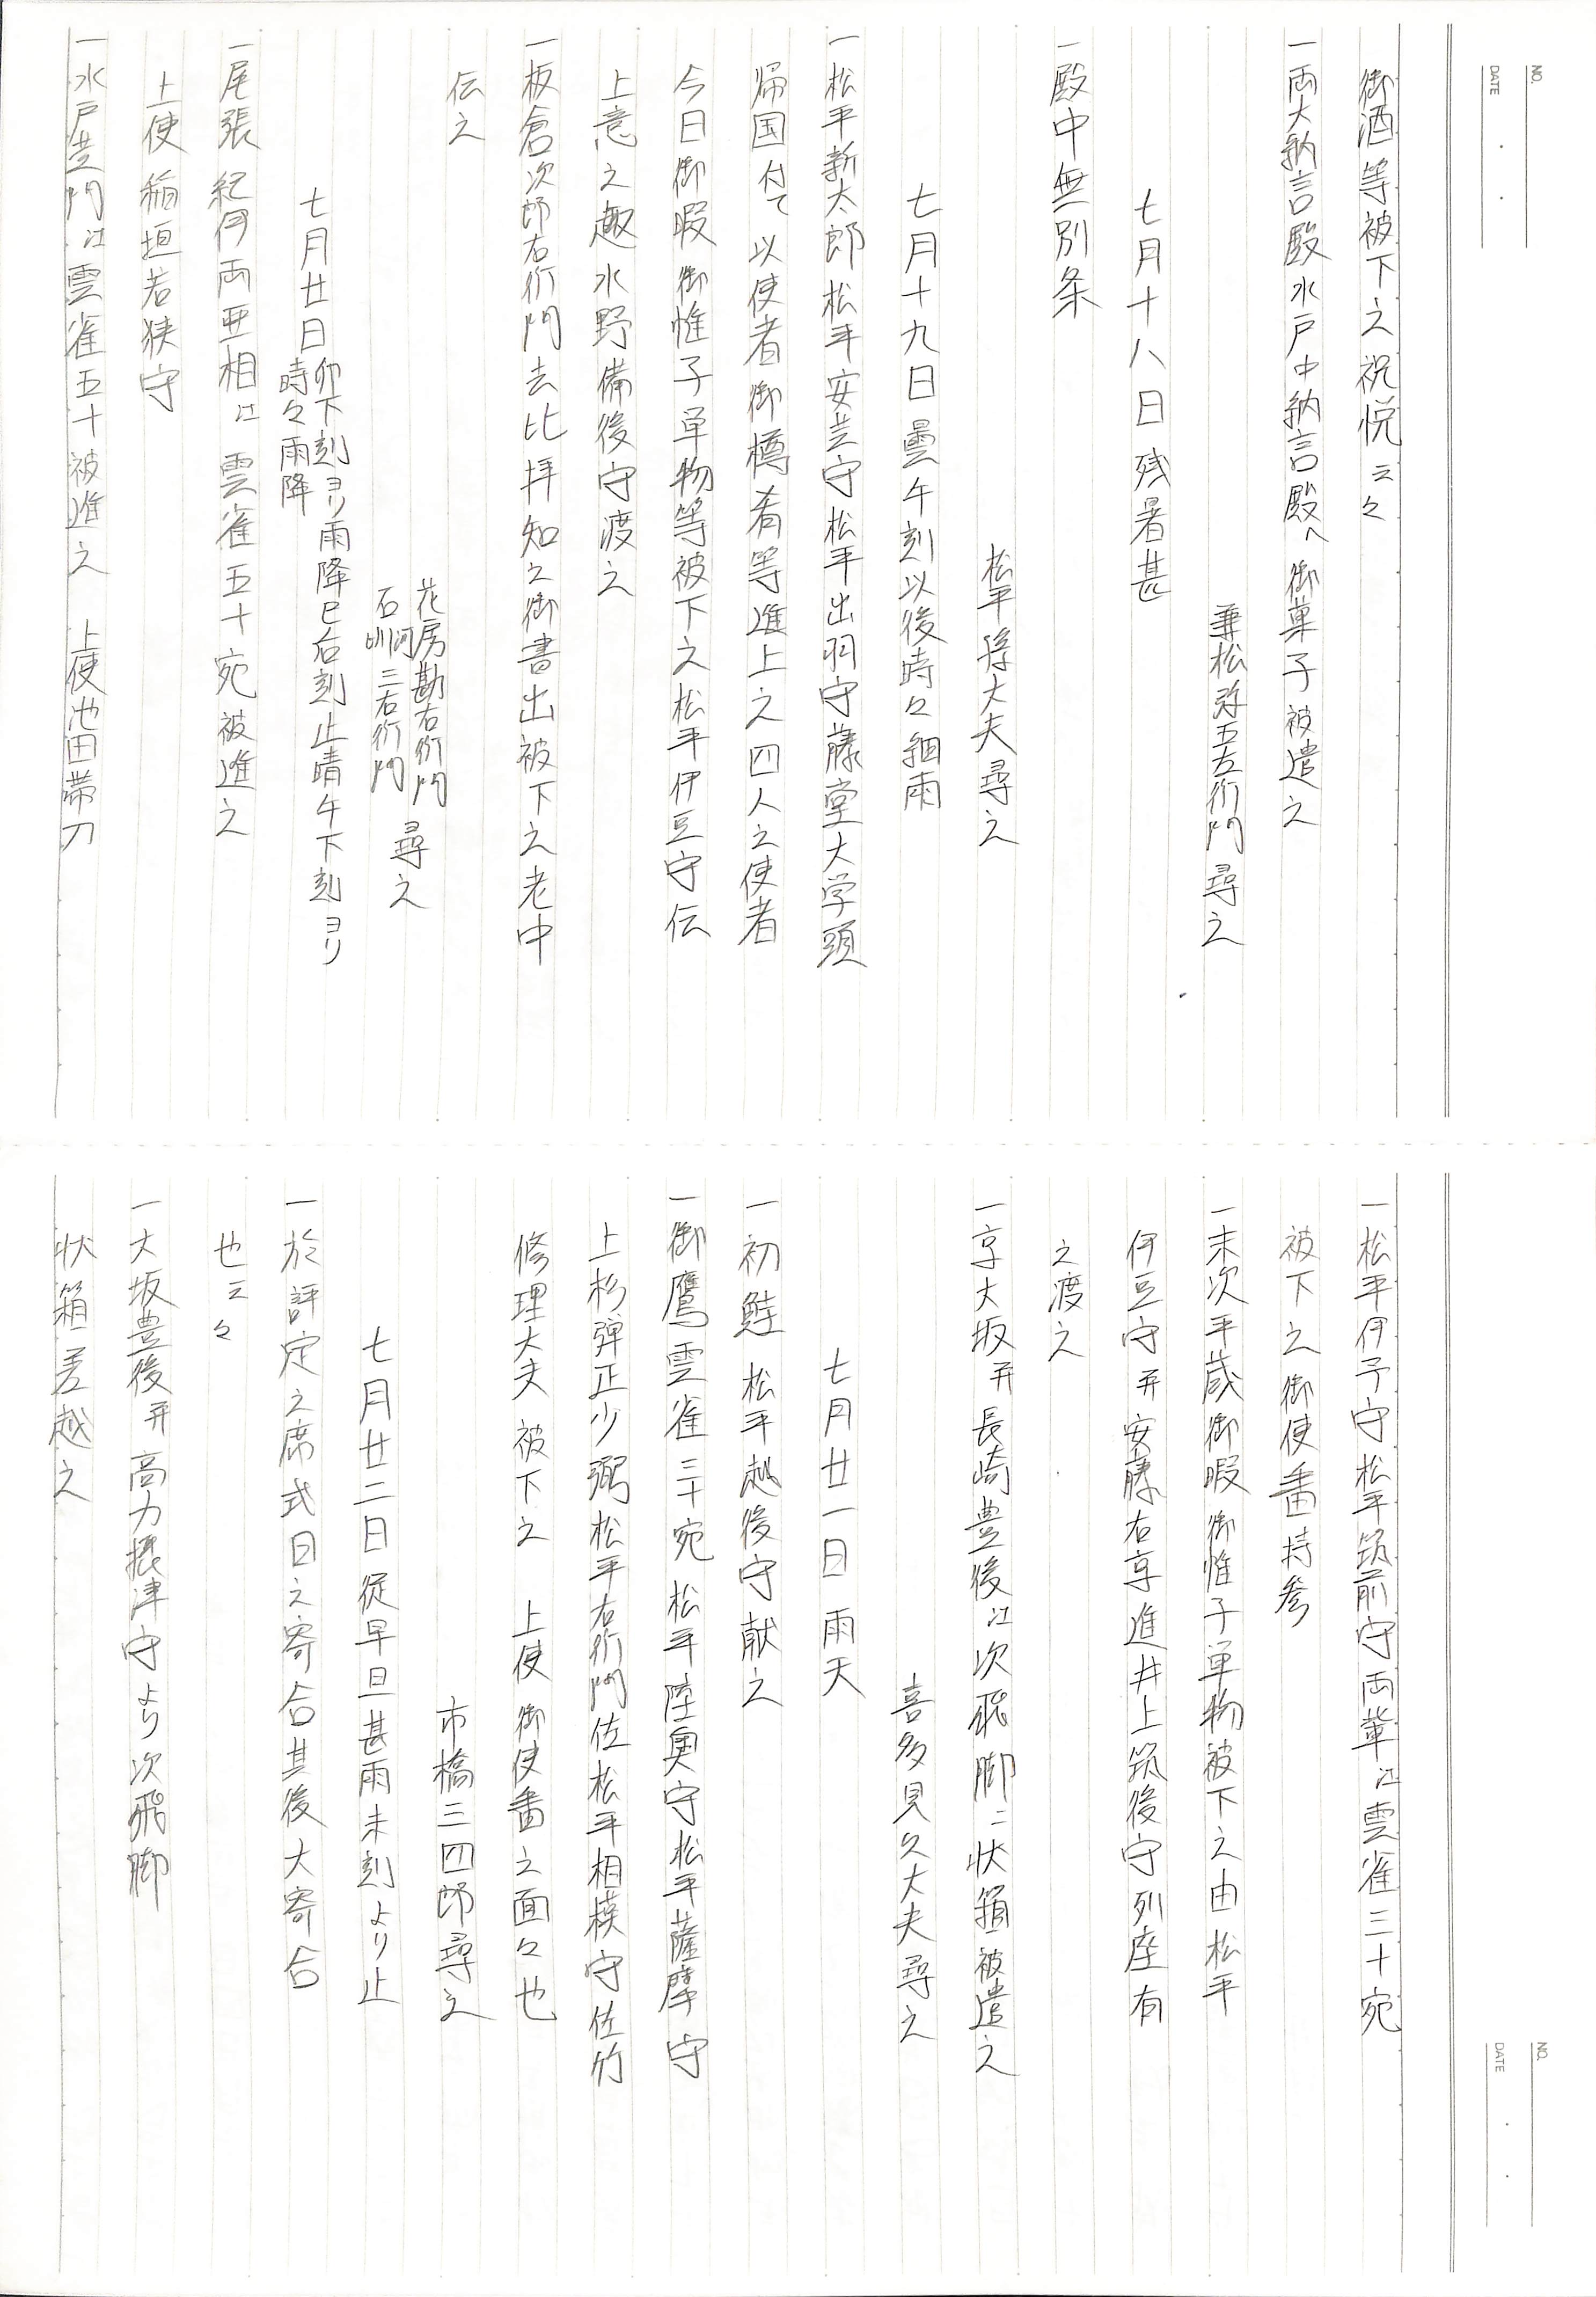 NO.
DATE
御酒等被下之祝悦云々
一両大納言殿水戸中納言殿へ御菓子被遣之
兼松弥五左衛門尋之
七月十八日残暑甚
一殿中無別条
松平隼大夫尋之
七月十九日曇午刻以後時々細雨
一松平新太郎松平安芸守松平出羽守藤堂大学頭
帰国付て以使者御樽肴等進上之四人之使者
今日御暇御惟子単物等被下之松平伊豆守伝
上意之趣水野備後守渡之
一板倉次郎右衛門去比拝知之御書出被下之老中
伝之
花房勘右衛門
石河三右衛門
尋之
七月廿日卯下刻ヨリ雨降巳后刻止晴午下刻ヨリ
時々雨降
一尾張紀伊両亜相江雲雀五十宛被進之
上使稲垣若狭守
一水戸黄門江雲雀五十被進之 上使池田帯刀
NO.
DATE
一松平伊予守松平筑前守両輩江雲雀三十宛
被下之御使番持参
一末次平蔵御暇御惟子単物被下之由松平
伊豆守并安藤右京進井上筑後守列座有
之渡之
一京大坂并長崎豊後江次飛脚ニ状箱被遣之
喜多見久大夫尋之
七月廿一日雨天
一初鮭松平越後守献之
一御鷹雲雀三十宛松平陸奥守松平薩摩守
上杉弾正少弼松平右衛門佐松平相模守佐竹
修理大夫被下之 上使御使番之面々也
市橋三四郎尋之
七月廿二日従早旦甚雨未刻より止
一於評定之席式日之寄合其後大寄合
也云々
一大坂豊後并高力摂津守より次飛脚
状箱差越之